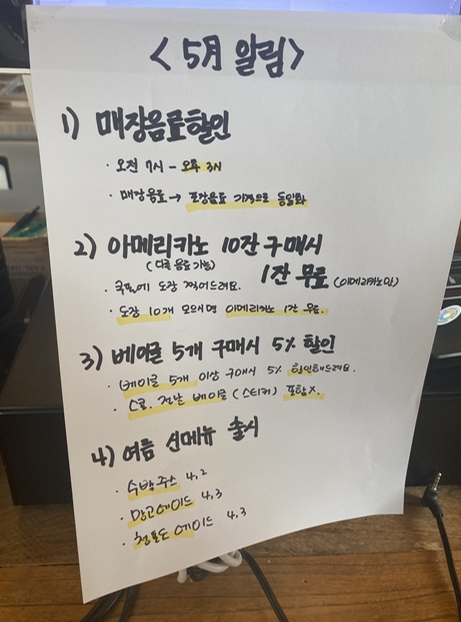 <5月 알림>
1) 매장음료할인
· 오전 7시 - 오후 3시
· 매장음료 → 포장음료 가격으로 동일화
2) 아메리카노 10잔 구매시
(다른 음료 가능)
1잔 무료 (아메리카노만)
· 쿠폰에 도장 찍어드려요.
· 도장 10개 모으시면 아메리카노 1잔 무료.
3) 베이글 5개 구매시 5% 할인
· 베이글 5개 이상 구매시 5% 할인해드려요.
· 전날 베이글 (스티커) 포함X.
4) 여름 신메뉴 출시
· 수박주스 4,2
· 망고에이드 4,3
· 청포도 에이드 4,3